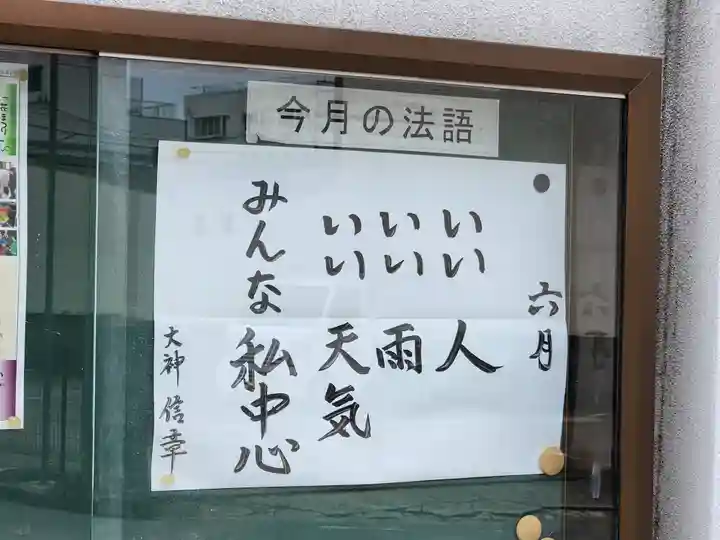 今月の法語
六月
いい人
いい雨
いい天気
みんな私中心
大神信章